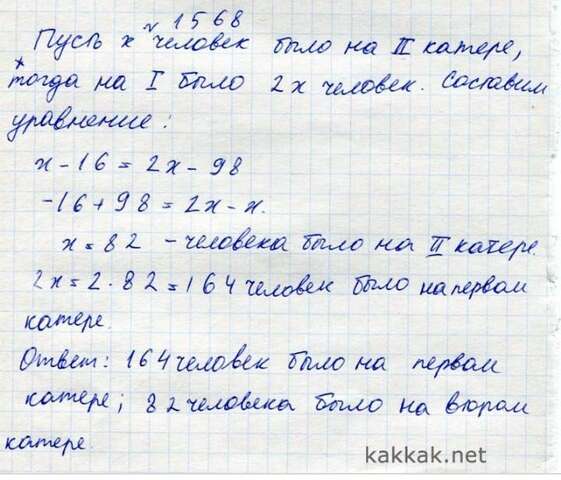 № 1568
Пусть х человек было на II катере,
тогда на I было 2х человек. Составим
уравнение:
х - 16 = 2х - 98
-16 + 98 = 2х - х.
х = 82 - человека было на II катере.
2х = 2 · 82 = 164 человек было на первом
катере.
Ответ: 164 человек было на первом
катере; 82 человека было на втором
катере.
kakkak.net